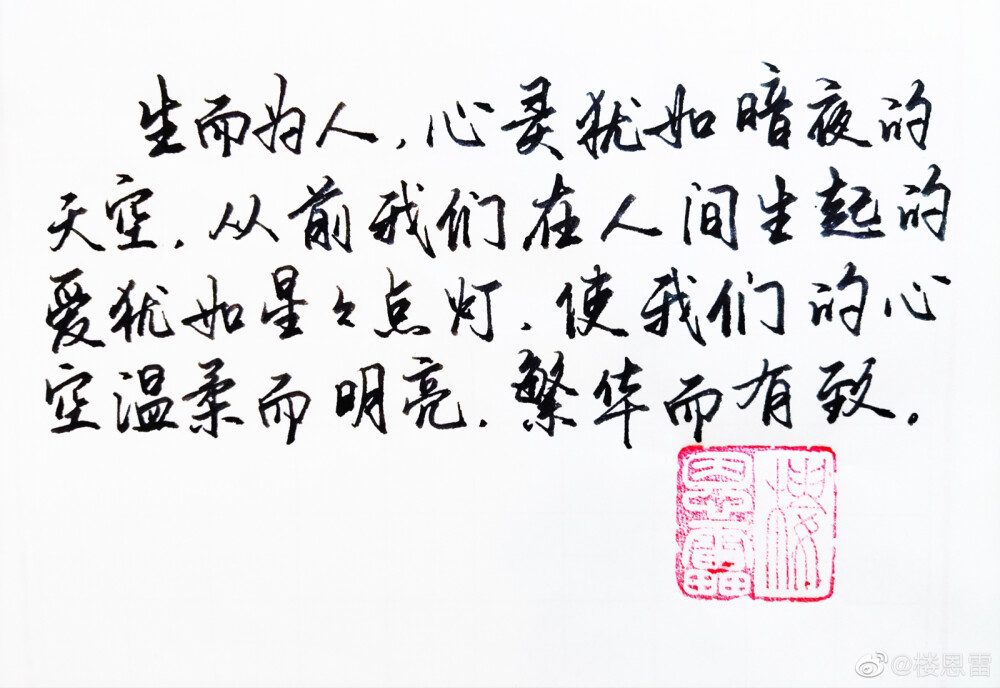 生而为人，心灵犹如暗夜的
天空，从前我们在人间生起的
爱犹如星々点灯，使我们的心
空温柔而明亮，繁华而有致。
楼恩雷
@楼恩雷